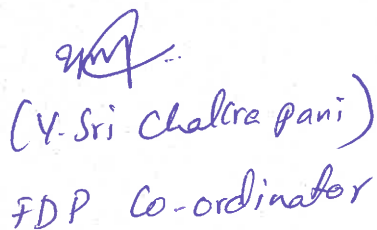 (Y. Sri Chakra pani)
FDP Co-ordinator